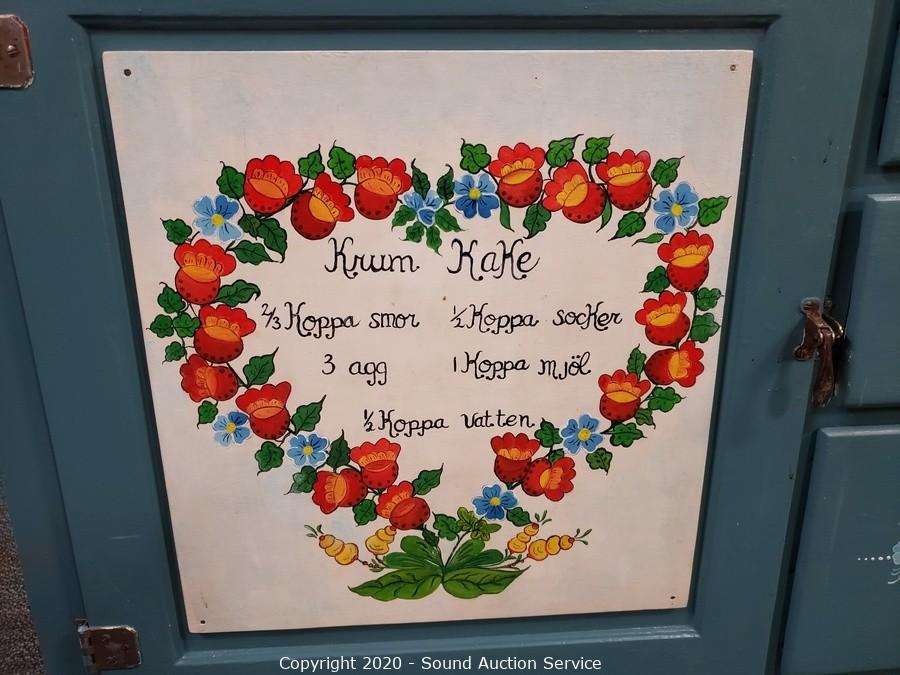 Krum Kake
2/3 Koppa smor 1/2 Koppa socker
3 agg 1 Koppa mjöl
1/2 Koppa vatten
Copyright 2020 - Sound Auction Service